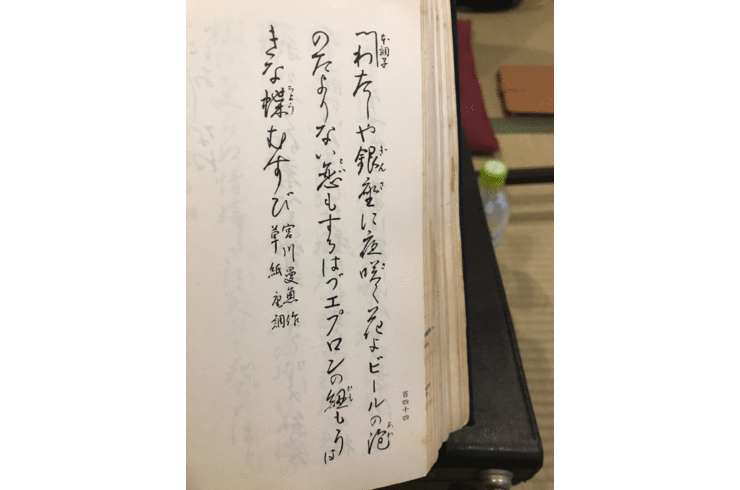 本調子
〽わたしや銀座に夜咲く花よビールの泡
のたよりない恋もするはづエプロンの紐もうは
きな蝶むすび
宮川曼魚作
草紙庵調
百四十四